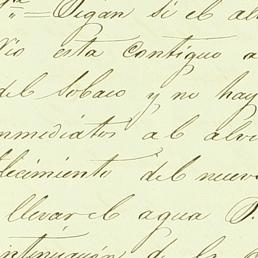 =Digan si el al
Vio esta contiguo a
del Sobaco y no hay
nmediatos al alv
lecimiento del nuev
llevar el agua P.
ntinuación de la